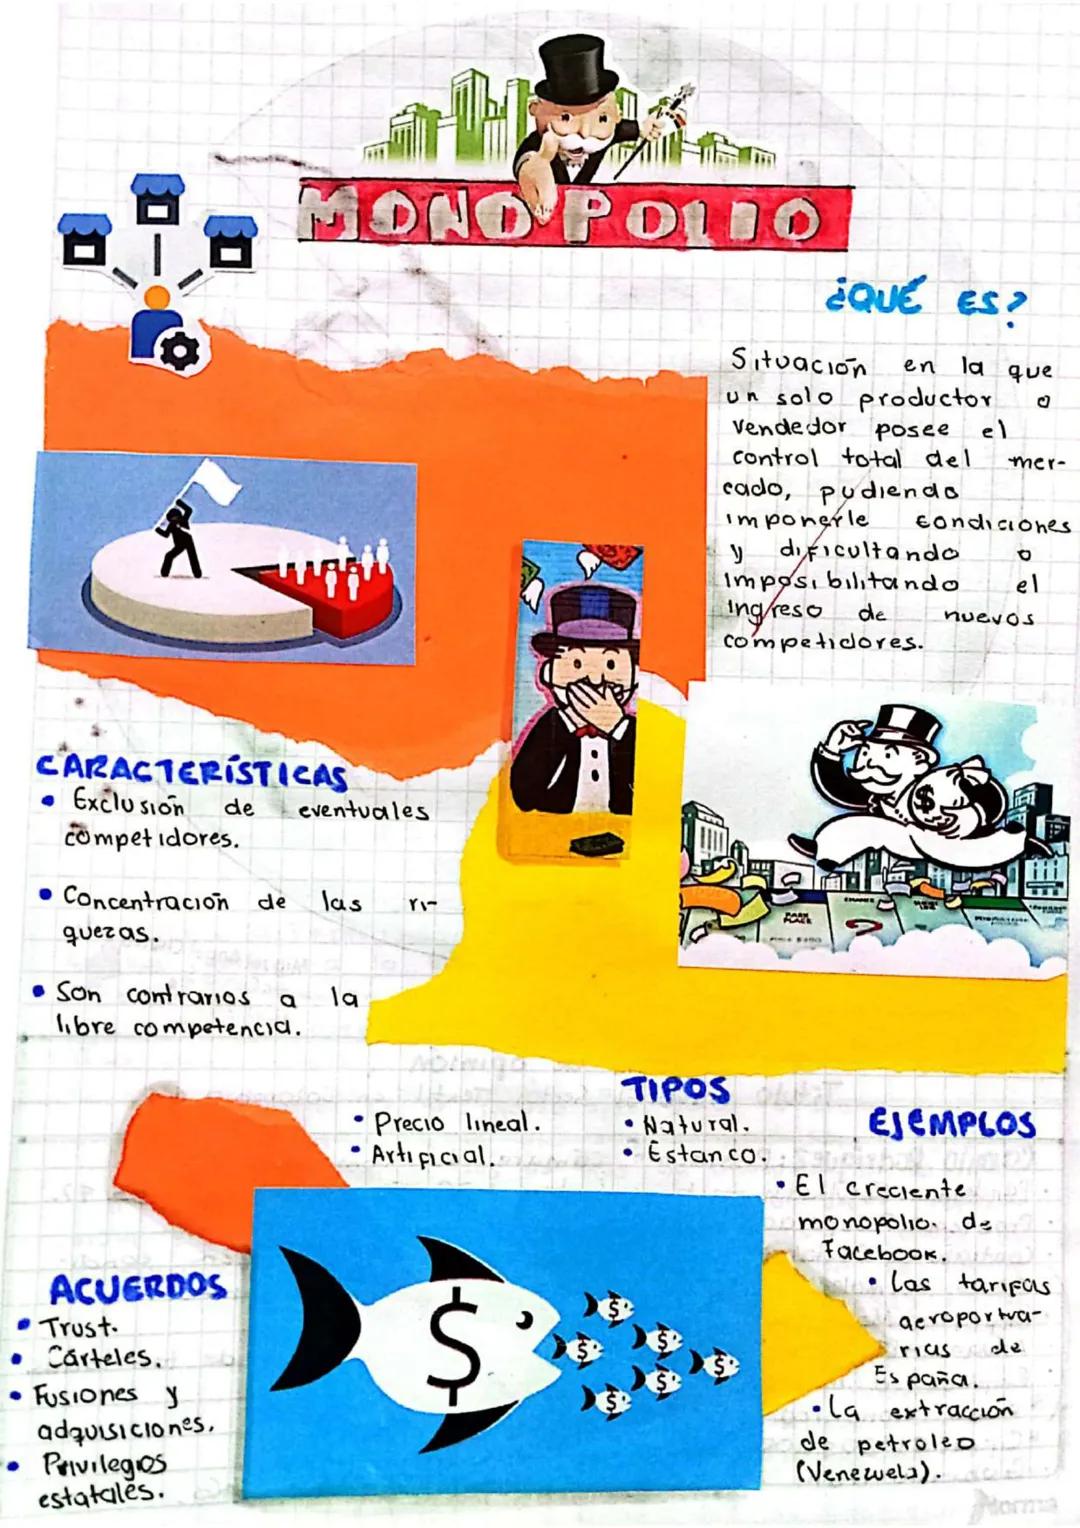 MONOPOLIO
¿QUÉ ES?
Situación en la que
un solo productor o
vendedor posee el
control total del mer-
cado, pudiendo
imponerle condiciones
y dificultando o
imposibilitando el
ingreso de nuevos
competidores.
CARACTERÍSTICAS
• Exclusión de eventuales
competidores.
• Concentración de las ri-
quezas.
• Son contrarios a la
libre competencia.
$
PARK
PLACE
CHANCE
?
TIPOS
• Precio lineal.
• Artificial.
• Natural.
• Estanco.
EJEMPLOS
• El creciente
monopolio de
Facebook.
• Las tarifas
aeroportua-
rias de
España.
• La extracción
de petroleo
(Venezuela).
ACUERDOS
• Trust.
• Cárteles.
• Fusiones y
adquisiciones.
• Privilegios
estatales.
$
$
$
$
$
$
$
Norma